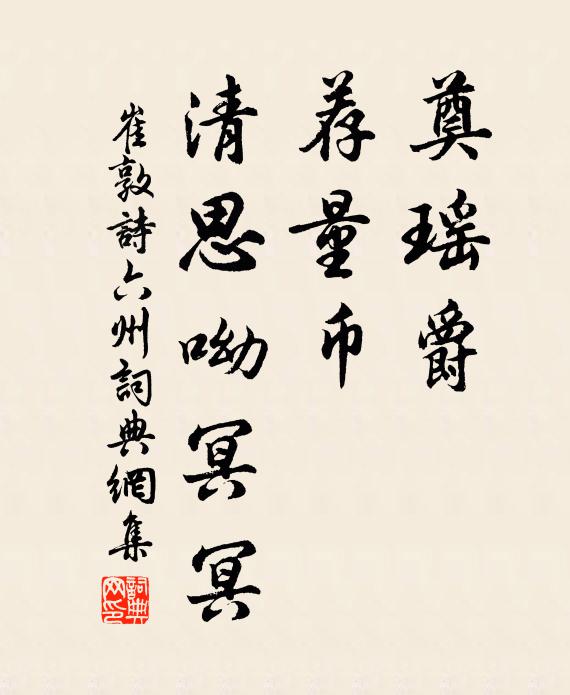 奠瑶爵
荐量币
清思呦冥冥
崔敦詩六州詞典網集
詞典网印